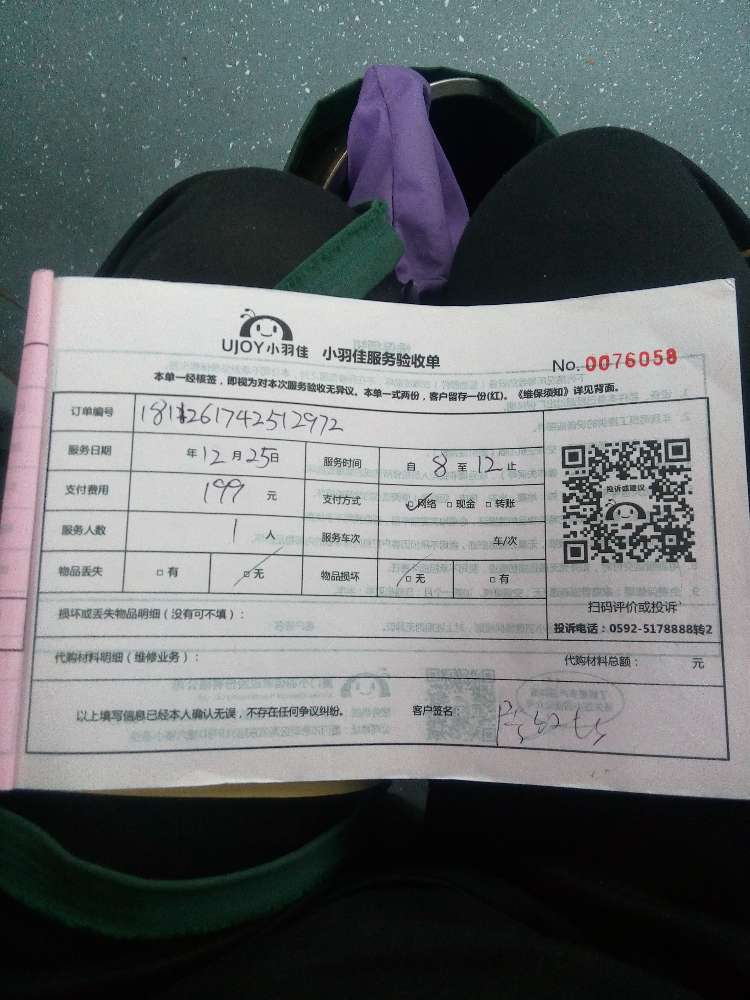 UJOY小羽佳 小羽佳服务验收单
No. 0076058
本单一经核签，即视为对本次服务验收无异议。本单一式两份，客户留存一份(红)。《维保须知》详见背面。
订单编号 1811261742512972
服务日期 年12月25日 服务时间 自 8 至 12 止
支付费用 199 元 支付方式 ☑网络 □现金 □转账
服务人数 1 人 服务车次 车/次
物品丢失 □有 ☑无 物品损坏 ☑无 □有
投诉或建议
扫码评价或投诉
投诉电话：0592-5178888转2
损坏或丢失物品明细（没有可不填）：
代购材料明细（维修业务）： 代购材料总额： 元
以上填写信息已经本人确认无误，不存在任何争议纠纷。 客户签名：